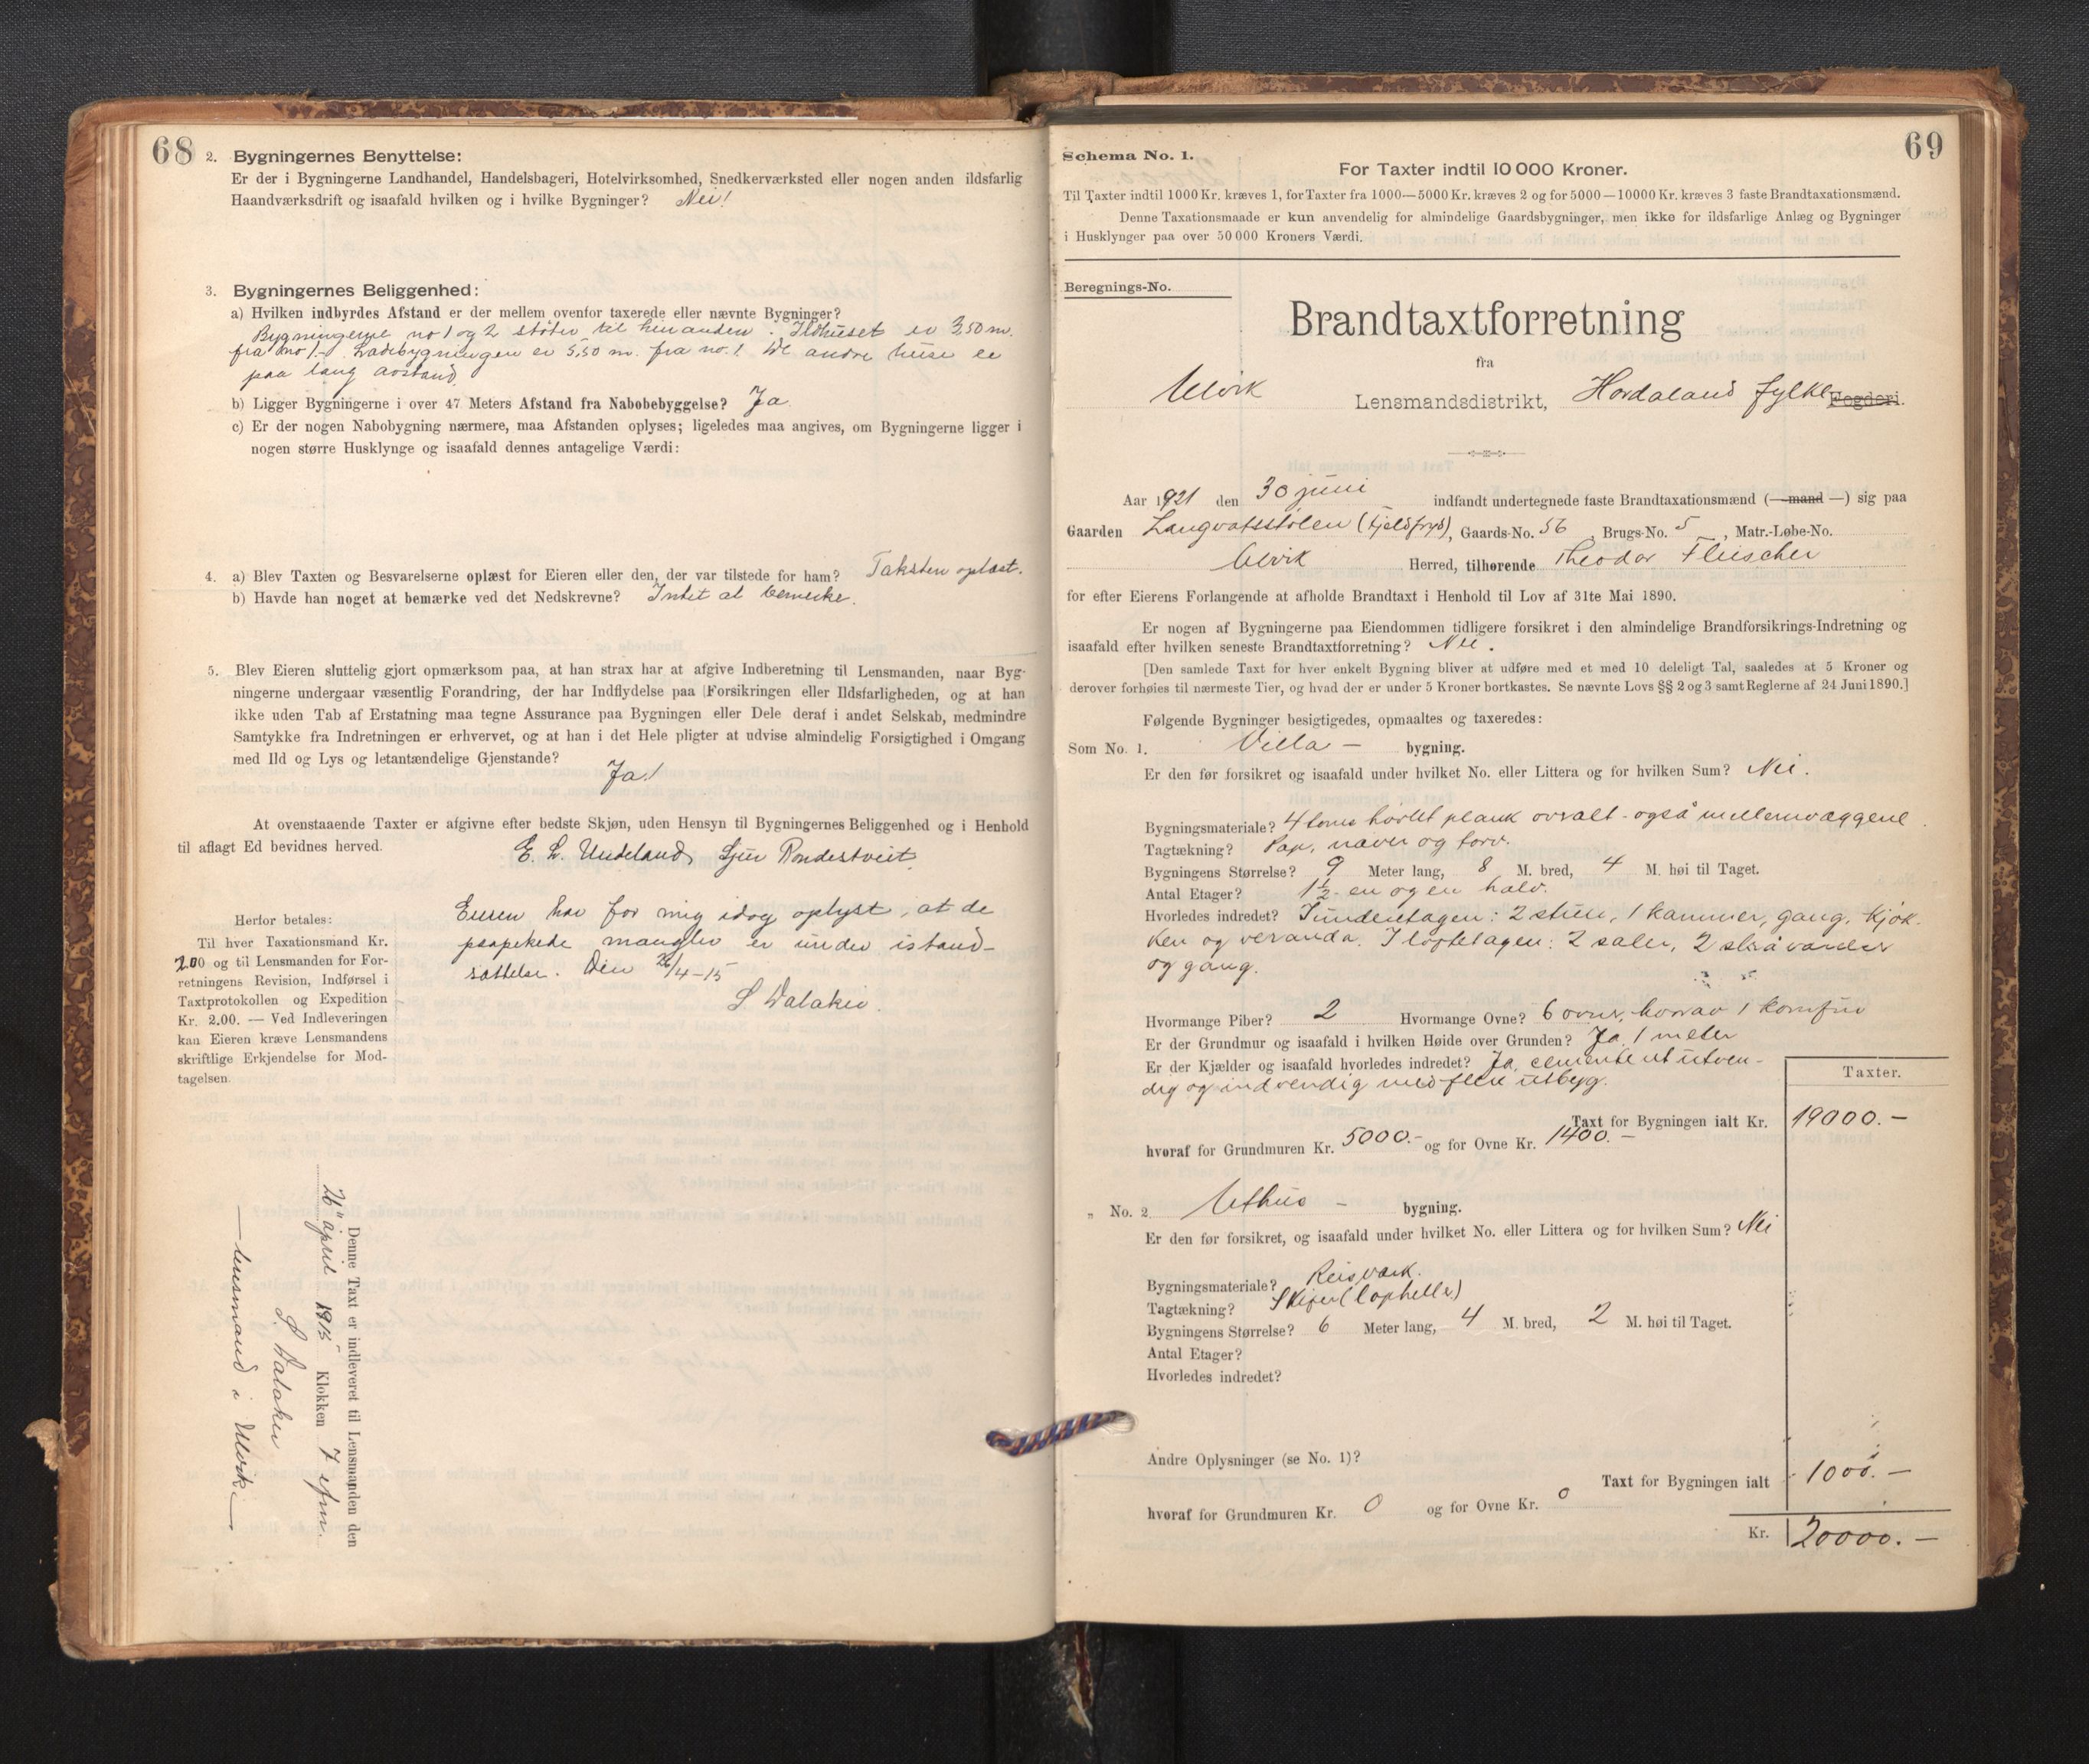 68
2. Bygningernes Benyttelse:
Er der i Bygningerne Landhandel, Handelsbageri, Hotelvirksomhed, Snedkerværksted eller nogen anden ildsfarlig
Haandværksdrift og isaafald hvilken og i hvilke Bygninger? Nei!
3. Bygningernes Beliggenhed:
a) Hvilken indbyrdes Afstand er der mellem ovenfor taxerede eller nævnte Bygninger?
Bygningerne no 1 og 2 støter til hinanden. Ildhuset er 3,50 m.
fra no 1.- Ladebygningen er 5,50 m. fra no. 1. De andre huse er
paa lang avstand.
b) Ligger Bygningerne i over 47 Meters Afstand fra Nabobebyggelse? Ja.
c) Er der nogen Nabobygning nærmere, maa Afstanden oplyses; ligeledes maa angives, om Bygningerne ligger i
nogen større Husklynge og isaafald dennes antagelige Værdi:
4. a) Blev Taxten og Besvarelserne oplæst for Eieren eller den, der var tilstede for ham? Taksten oplæst.
b) Havde han noget at bemærke ved det Nedskrevne? Intet at bemerke.
5. Blev Eieren sluttelig gjort opmærksom paa, at han strax har at afgive Indberetning til Lensmanden, naar Byg-
ningerne undergaar væsentlig Forandring, der har Indflydelse paa Forsikringen eller Ildsfarligheden, og at han
ikke uden Tab af Erstatning maa tegne Assurance paa Bygningen eller Dele deraf i andet Selskab, medmindre
Samtykke fra Indretningen er erhvervet, og at han i det Hele pligter at udvise almindelig Forsigtighed i Omgang
med Ild og Lys og letantændelige Gjenstande?
Ja!
At ovenstaaende Taxter er afgivne efter bedste Skjøn, uden Hensyn til Bygningernes Beliggenhed og i Henhold
til aflagt Ed bevidnes herved.
E. L. Undeland, Sjur Rondestveit.
Herfor betales:
Til hver Taxationsmand Kr.
2.00 og til Lensmanden for For-
retningens Revision, Indførsel i
Taxtprotokollen og Expedition
Kr. 2.00. — Ved Indleveringen
kan Eieren kræve Lensmandens
skriftlige Erkjendelse for Mod-
tagelsen.
Eieren har for mig idag oplyst, at de
paapekede mangler er under istand-
sættelse. Den 26/4-15
S. Dalaker.
Denne Taxt er indleveret til Lensmanden den
26 april 1915 Klokken 7 efm.
S. Dalaker
— lensmand i Ulvik. —
69
Schema No. 1.
For Taxter indtil 10 000 Kroner.
Til Taxter indtil 1000 Kr. kræves 1, for Taxter fra 1000—5000 Kr. kræves 2 og for 5000—10000 Kr. kræves 3 faste Brandtaxationsmænd.
Denne Taxationsmaade er kun anvendelig for almindelige Gaardsbygninger, men ikke for ildsfarlige Anlæg og Bygninger
i Husklynger paa over 50 000 Kroners Værdi.
Beregnings-No.
Brandtaxtforretning
fra
Ulvik Lensmandsdistrikt, Hordaland fylke Fogderi.
Aar 1921 den 30 juni indfandt undertegnede faste Brandtaxationsmænd (— mand —) sig paa
Gaarden Langvatsstølen (Fjeldfryd), Gaards-No. 56, Brugs-No. 5, Matr.-Løbe-No.
Ulvik Herred, tilhørende Theodor Fleischer
for efter Eierens Forlangende at afholde Brandtaxt i Henhold til Lov af 31te Mai 1890.
Er nogen af Bygningerne paa Eiendommen tidligere forsikret i den almindelige Brandforsikrings-Indretning og
isaafald efter hvilken seneste Brandtaxtforretning? Nei.
[Den samlede Taxt for hver enkelt Bygning bliver at udføre med et med 10 deleligt Tal, saaledes at 5 Kroner og
derover forhøies til nærmeste Tier, og hvad der er under 5 Kroner bortkastes. Se nævnte Lovs §§ 2 og 3 samt Reglerne af 24 Juni 1890.]
Følgende Bygninger besigtigedes, opmaaltes og taxeredes:
Som No. 1. Villa — bygning.
Er den før forsikret og isaafald under hvilket No. eller Littera og for hvilken Sum? Nei.
Bygningsmateriale? 4 toms høvlet plank overalt - også mellemvæggene.
Tagtækning? Pap, næver og torv.
Bygningens Størrelse? 9 Meter lang, 8 M. bred, 4 M. høi til Taget.
Antal Etager? 1½ - en og en halv.
Hvorledes indredet? I underetagen: 2 stuer, 1 kammer, gang, kjøk-
ken og veranda. I loftetagen: 2 saler, 2 skråværelser
og gang.
Hvormange Piber? 2 Hvormange Ovne? 6 ovner, hvorav 1 komfur
Er der Grundmur og isaafald i hvilken Høide over Grunden? Ja, 1 meter
Er der Kjælder og isaafald hvorledes indredet? Ja, cementeret utven-
dig og indvendig med flere utbyg.
Taxter.
Taxt for Bygningen ialt Kr. 19000.-
hvoraf for Grundmuren Kr. 5000.- og for Ovne Kr. 1400.-
" No. 2 Uthus - bygning.
Er den før forsikret, og isaafald under hvilket No. eller Littera og for hvilken Sum? Nei
Bygningsmateriale? Reisverk.
Tagtækning? Skifer (lapheller)
Bygningens Størrelse? 6 Meter lang, 4 M. bred, 2 M. høi til Taget.
Antal Etager?
Hvorledes indredet?
Andre Oplysninger (se No. 1)?
Taxt for Bygningen ialt 1000.-
hvoraf for Grundmuren Kr. 0 og for Ovne Kr. 0
Kr. 20000.-